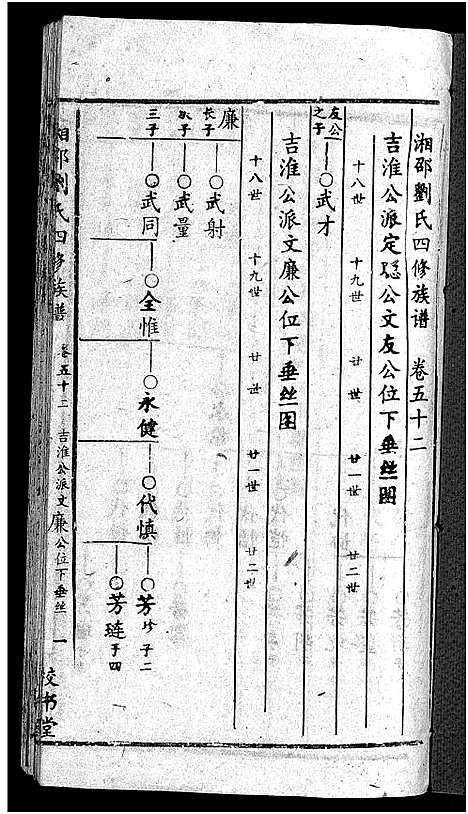 湘邵劉氏四修族谱 卷五十二
吉淮公派定聪公文友公位下垂丝图
十八世 十九世 廿世 廿一世 廿二世
友公之子 武才
吉淮公派文廉公位下垂丝图
十八世 十九世 廿世 廿一世 廿二世
廉长子 武射
次子 武量
三子 武同 全惟 永健 代慎 芳珍 子二
芳琏 子四
湘邵劉氏四修族普 卷五十二 吉淮公派文廉公位下垂丝 一 校书堂